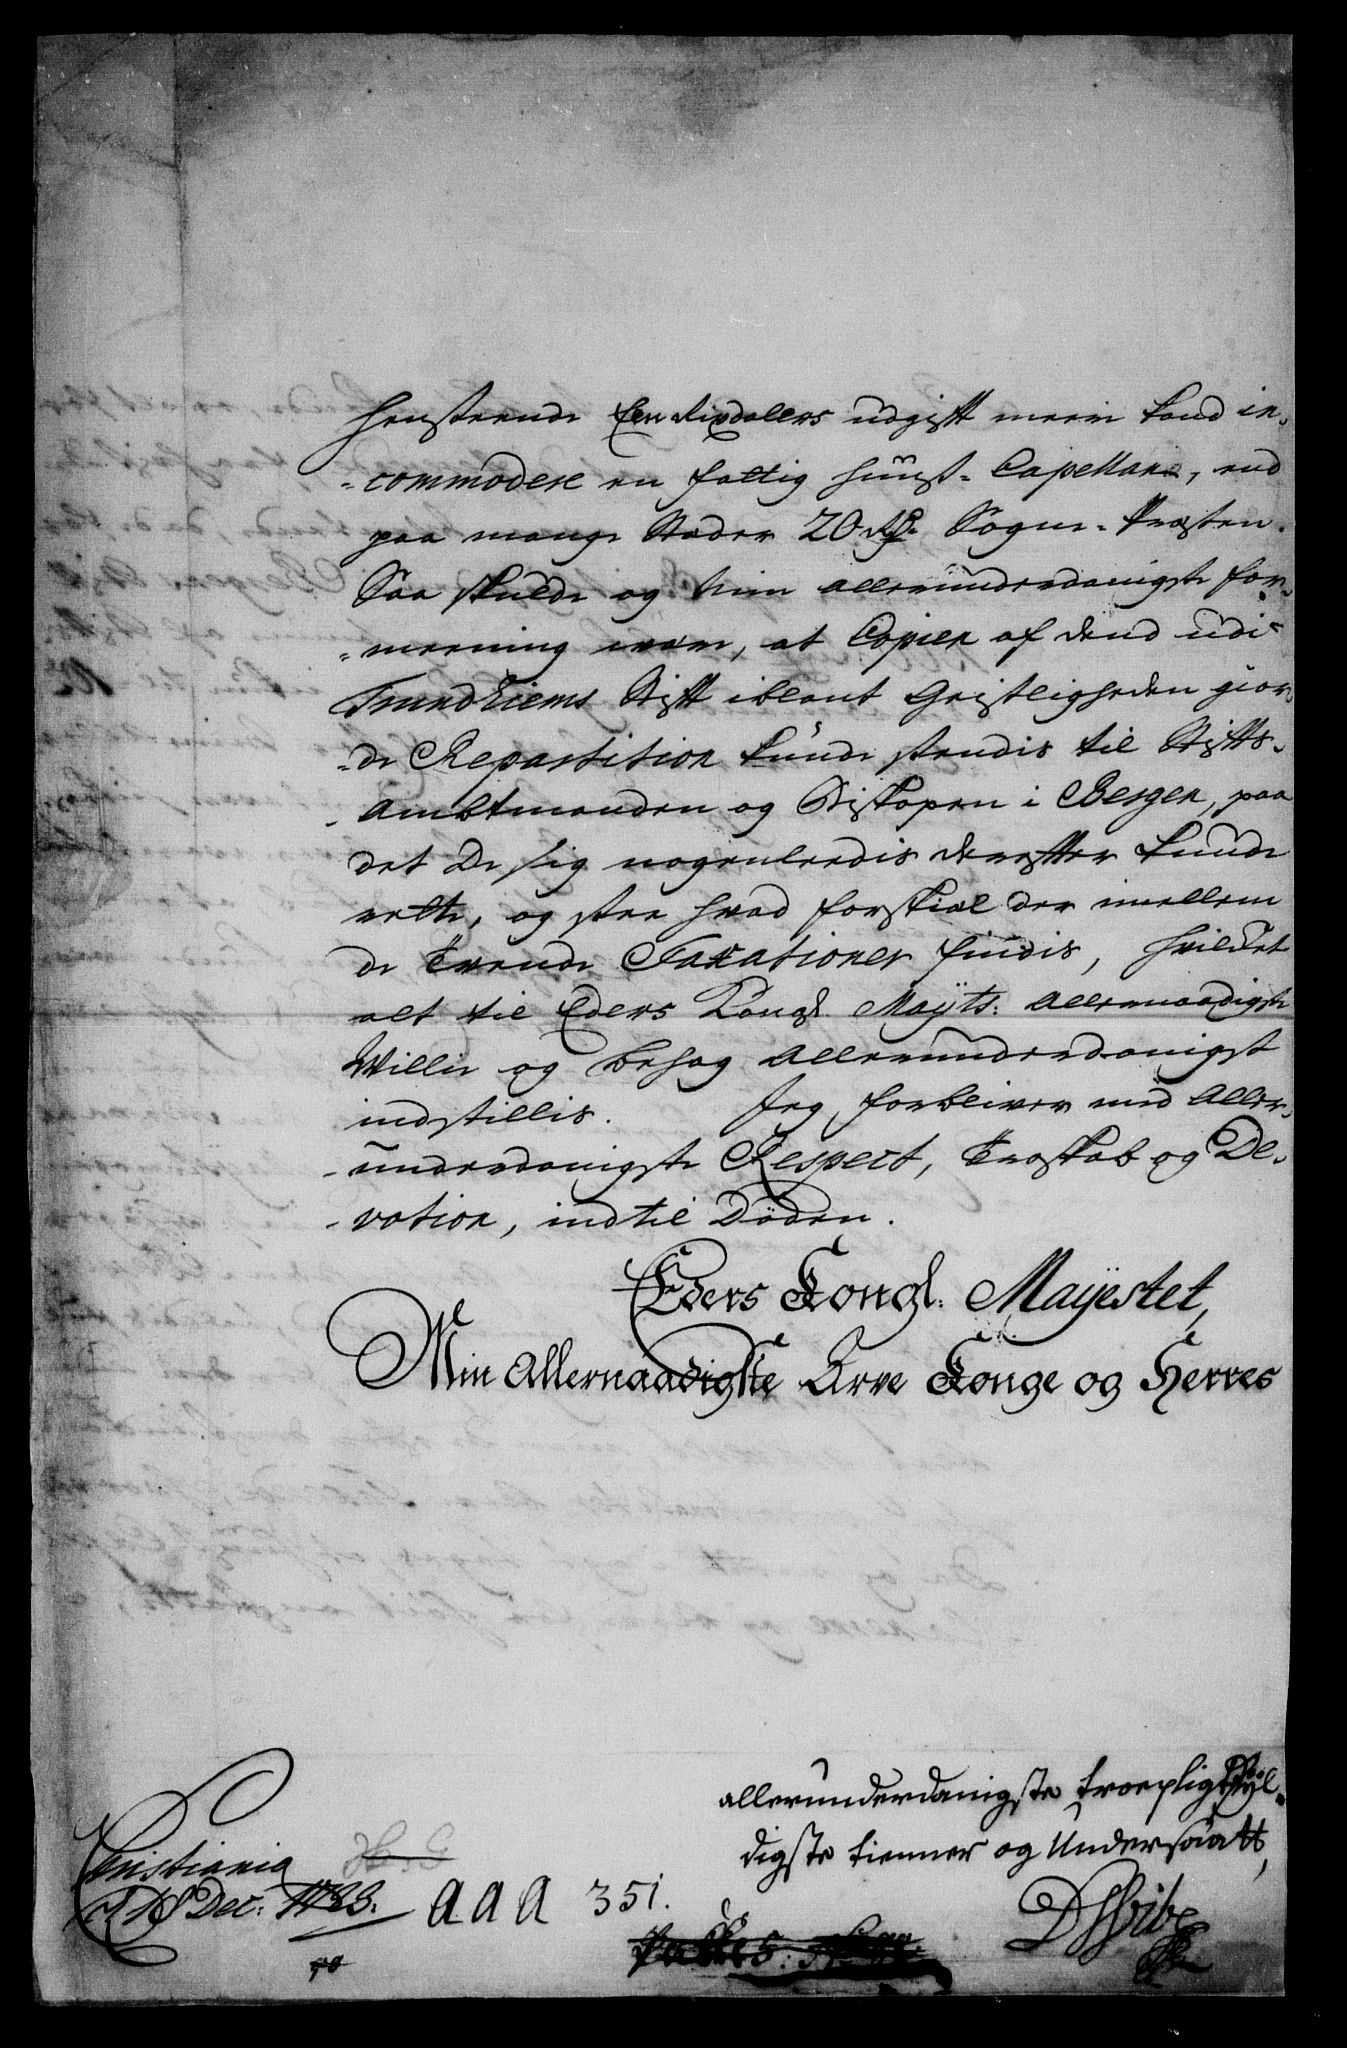 henseende Een Rixdalers udgift meere kand in-
-commodere en fattig huus-Capellan, end
paa mange Stæder 20 Rd. Sogne-Præsten.
Saa skulde og min allerunderdanigste for-
-meening være, at Copien af dend udi
Trundhiems Stift iblant Geistligheden gior-
-de Repartition kunde sendis til Stifts-
-Ambtmanden og Biskopen i Bergen, paa
det De sig nogenleedis derefter kunde
rette, og see hvad forskiæl der imellem
de tvende Taxationer findis, hvilket
alt til Eders Kongl. Mayts: allernaadigste
Villie og behag allerunderdanigst
indstillis. Jeg forbliver med Aller-
-underdanigste Respect, Troskab og De-
-votion, indtil Døden.
Eders Kongl. Mayestet,
Min Allernaadigste Arve Konge og Herres
allerunderdanigste troepligtskyl-
digste tienner og Undersaatt,
Christiania
Dec:
a a a 351.
DVibe